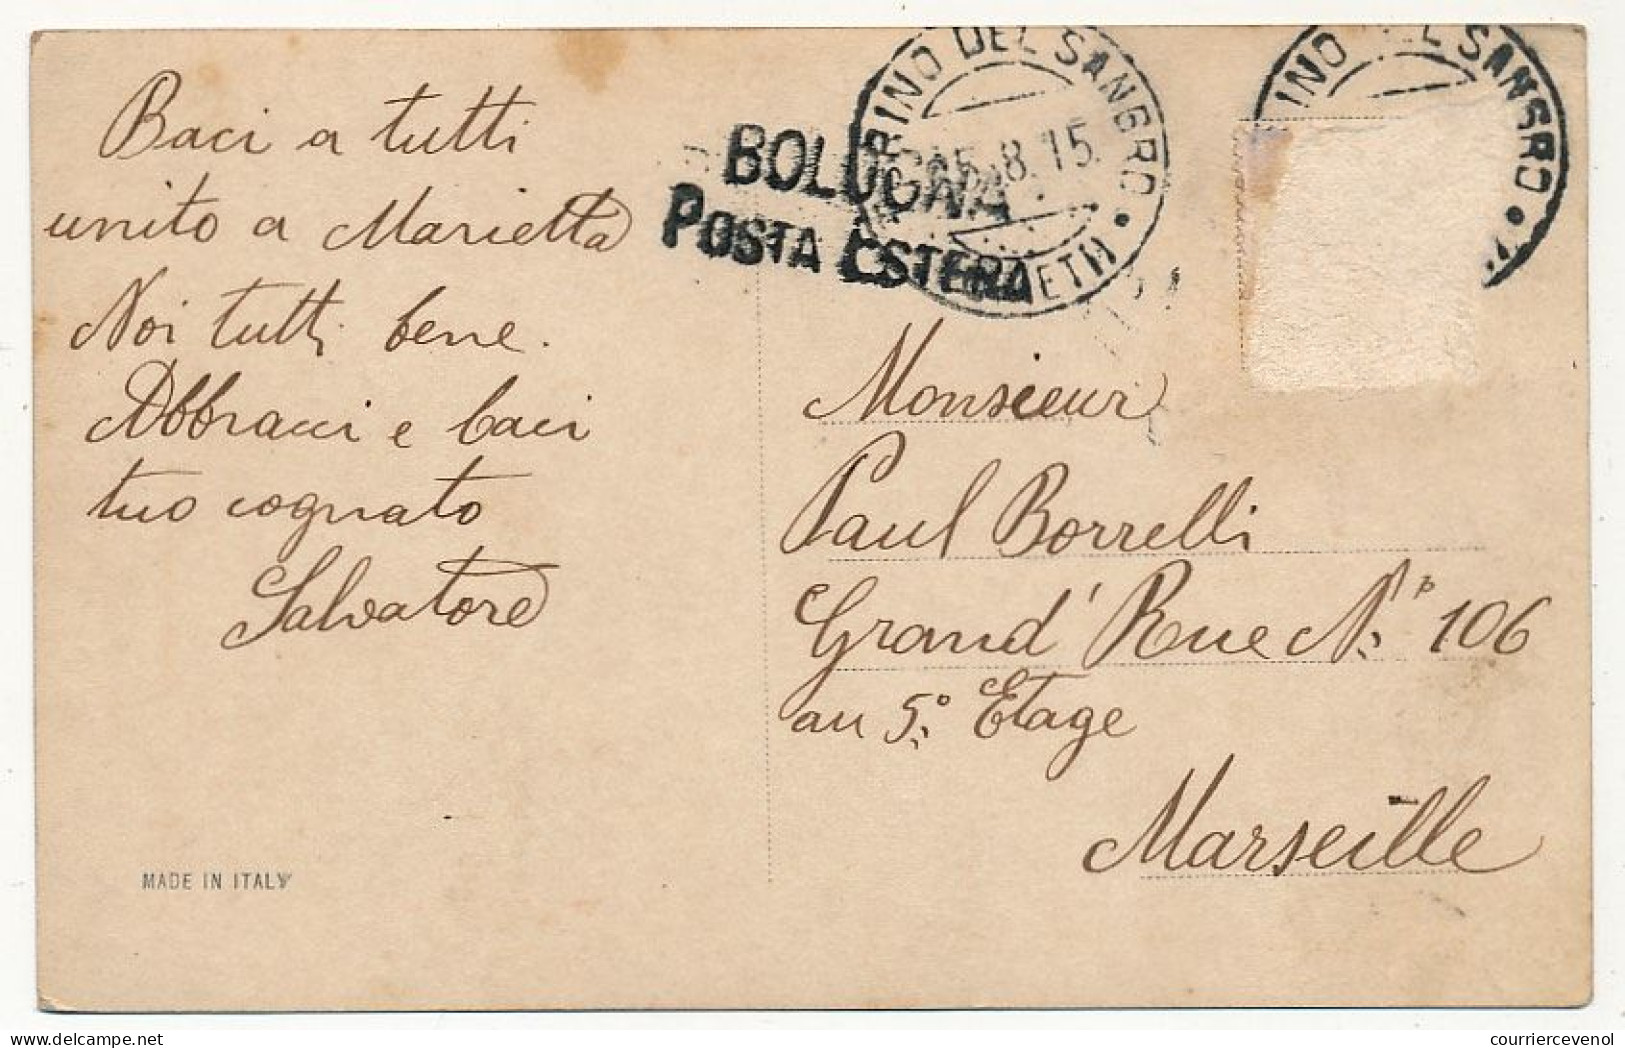 Baci a tutti
unito a Marietta
Noi tutti bene.
Abbracci e baci
tuo cognato
Salvatore
MADE IN ITALY
BOLOGNA
POSTA ESTERA
RINO DEL SANGRO
5.8.15.
INO DEL SANGRO
Monsieur
Paul Borrelli
Grand' Rue N° 106
au 5° Etage
Marseille
www.courriercevenol.com